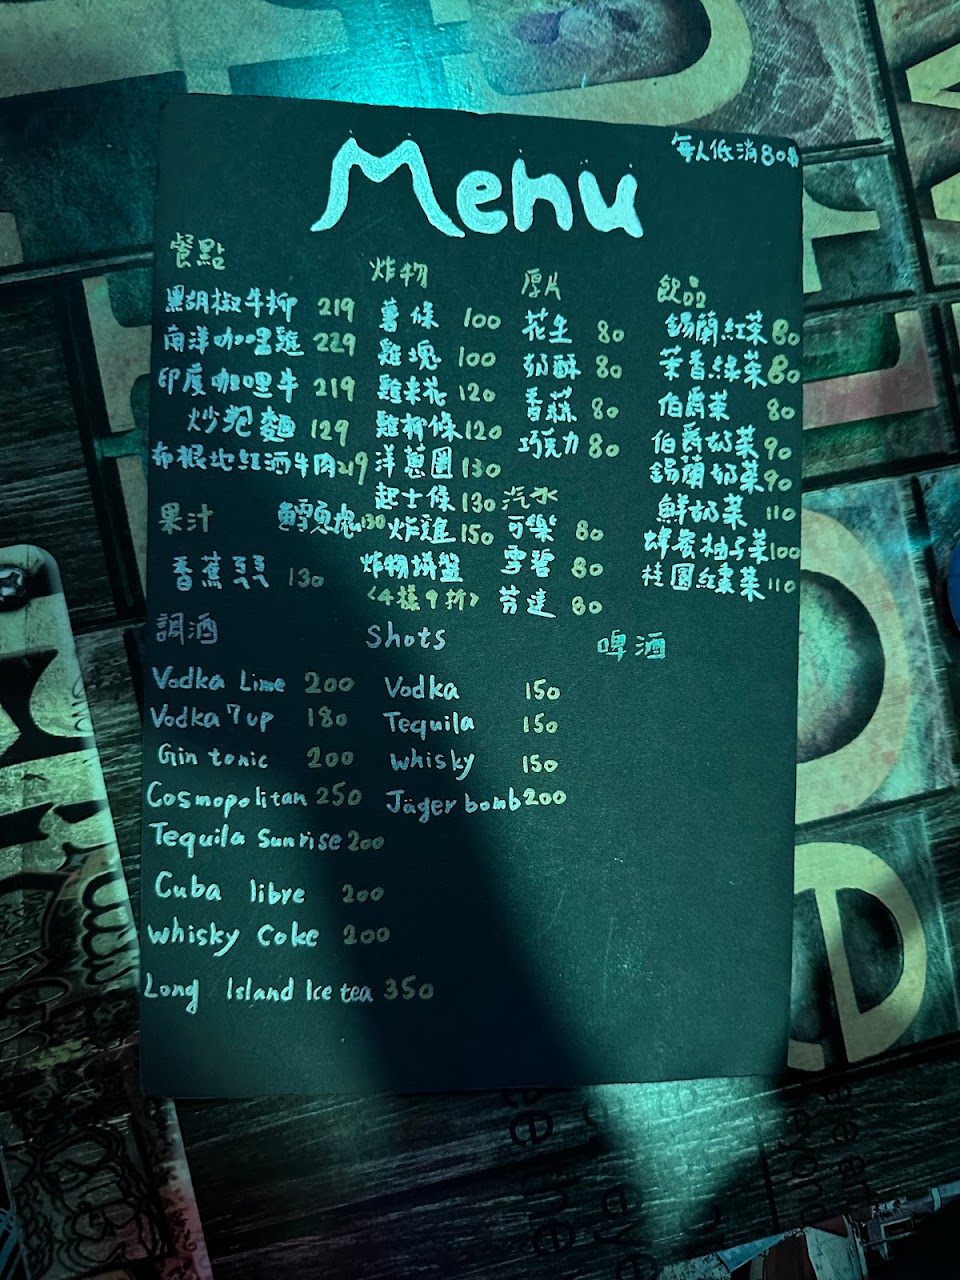 Menu
每人低消80元
餐點
黑胡椒牛柳 219
南洋咖哩雞 229
印度咖哩牛 219
炒泡麵 129
布根地紅酒牛肉 219
果汁
香蕉ㄋㄋ 130
炸物
薯條 100
雞塊 100
雞米花 120
雞柳條 120
洋蔥圈 130
起士條 130
鱈魚塊 130
炸雞 150
炸物拼盤
<4樣9折>
厚片
花生 80
奶酥 80
香蒜 80
巧克力 80
汽水
可樂 80
雪碧 80
芬達 80
飲品
錫蘭紅茶 80
茉香綠茶 80
伯爵茶 80
伯爵奶茶 90
錫蘭奶茶 90
鮮奶茶 110
蜂蜜柚子茶 100
桂圓紅棗茶 110
調酒
Vodka Lime 200
Vodka 7up 180
Gin tonic 200
Cosmopolitan 250
Tequila Sunrise 200
Cuba libre 200
Whisky Coke 200
Long Island Ice tea 350
Shots
Vodka 150
Tequila 150
Whisky 150
Jäger bomb 200
啤酒